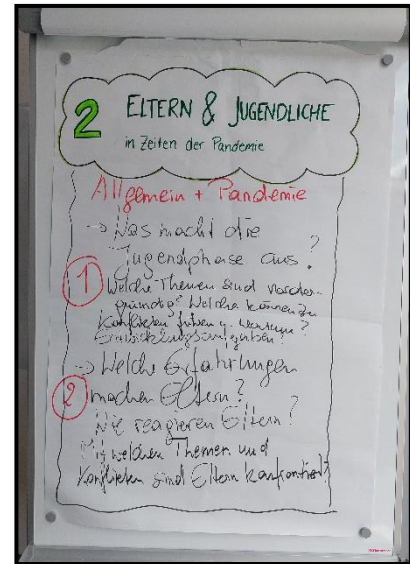 2 ELTERN & JUGENDLICHE
in Zeiten der Pandemie
Allgemein + Pandemie
→ Was macht die
Jugendphase aus?
① Welche Themen sind vorder-
gründig? Welche können zu
Konflikten führen u. warum?
Entwicklungsaufgaben?
→ Welche Erfahrungen
② machen Eltern?
Wie reagieren Eltern?
Mit welchen Themen und
Konflikten sind Eltern konfrontiert?